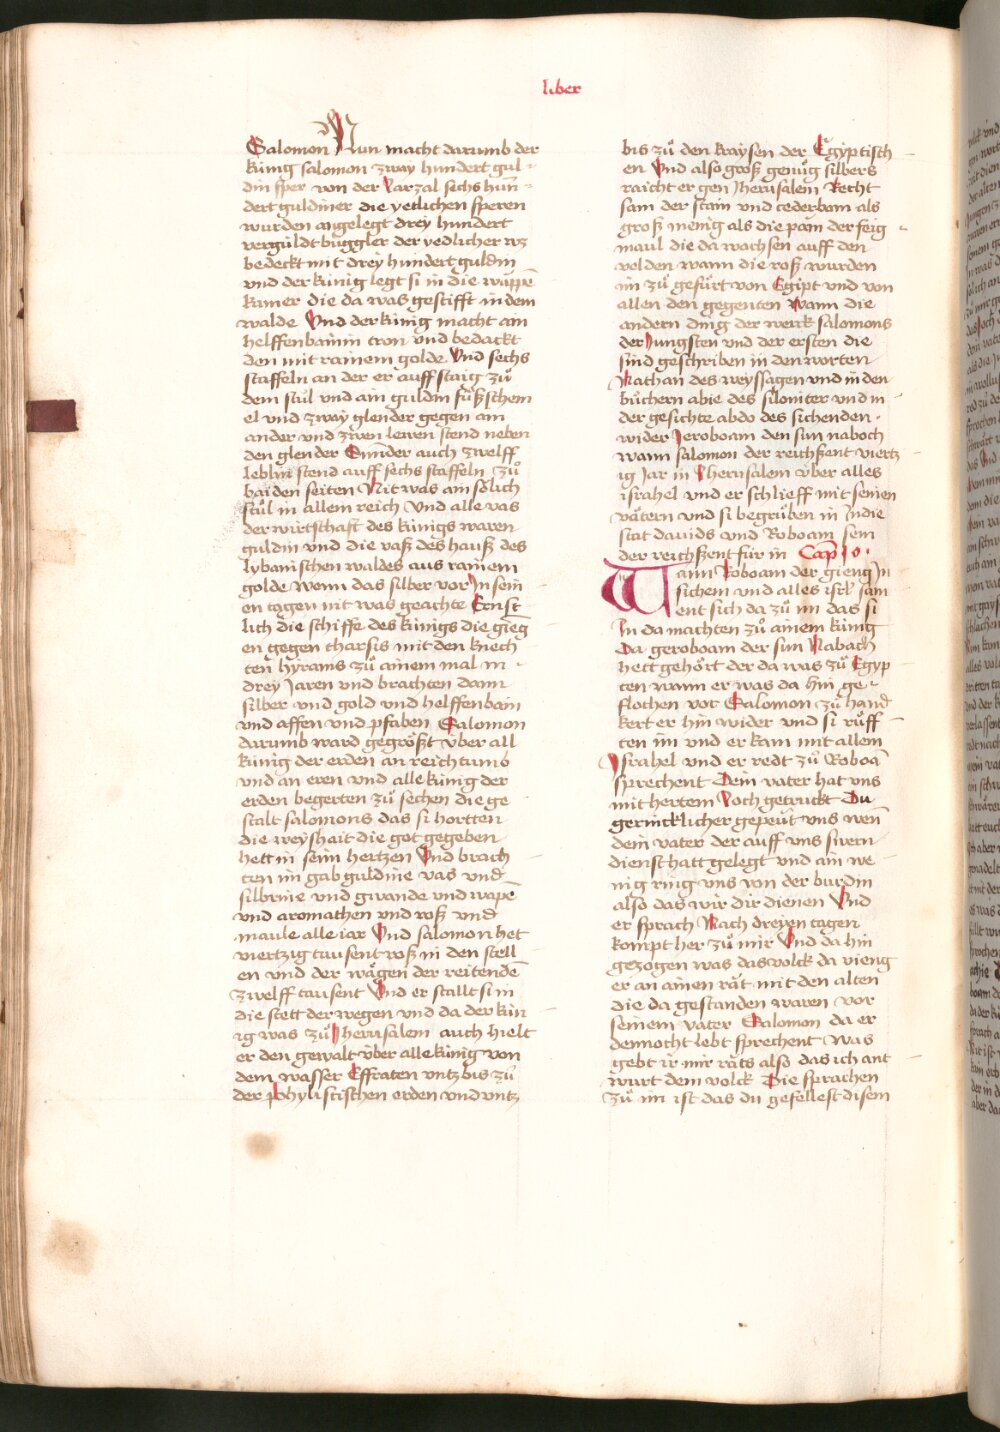 liber
Salomon Nun macht darumb der
künig salomon zway hundert gul
din sper von der zarzal sechs hun
dert guldiner die yetlichen speren
wurden angelegt drey hundert
vergüldt büggler der yedlicher wz
bedeckt mit drey hundert guldin
vnd der künig legt si in die wappē
kamer die da was gestifft in dem
walde Vnd der künig macht ain
helffenbainin tron vnd bedackt
den mit rainem golde Vnd sechs
staffeln an der er auff staig zů
dem stůl vnd ain guldin fůßschem
el vnd zway glender gegen ain
ander vnd zwen lewen stend neben
den glender Sunder auch zwelff
leblin stend auff sechs staffeln zů
baiden seiten Nit was ain sölich
stůl in allem reich Vnd alle vas
der wirtschaft des künigs waren
guldin vnd die vaß des hauß des
lybanischen waldes aus rainem
golde wenn das silber vor In sein
en tagen nit was geachte Ernst
lich die schiffe des künigs die gieg
en gegen tharsis mit den knech
ten hyrams zů ainem mal in
drey Jaren vnd brachten dann
silber vnd gold vnd helffenbain
vnd affen vnd pfaben Salomon
darumb ward gegrößt vber all
künig der erden an reichtums
vnd an eren vnd alle künig der
erden begerten zů sechen die ge
stalt salomons das si hortten
die weyshait die got gegeben
hett in seim hertzen Vnd brach
ten im gab guldine vas vnd
silbrnie vnd gwande vnd wapē
vnd aromathen vnd roß vnd
maule alle iar Vnd salomon het
viertzig tausent roß in den stell
en vnd der wägen der reitendē
zwelff tausent Vnd er stallt si in
die stett der wegen vnd da der kün
ig was zů Jherusalem auch hielt
er den gewalt über alle künig von
dem wasser Effraten vntz bis zů
der phylistischen erden vnd vntz
bis zů den kraysen der Egyptisch
en Vnd also groß genůg silbers
raicht er gen Jherusalem Recht
sam der stain vnd cederbom als
groß menig als die pam der feig
maul die da wochsen auff den
velden wann die roß wurden
im zů gefürt von Egipt vnd von
allen den gegenten Wann die
andern ding der werk salomons
der Jungsten vnd der ersten die
sind geschriben in den worten
Nathan des weyssagen vnd in den
büchern abie des siloniter vnd in
der gesichte abdo des sichenden
wider Jeroboam den sun naboch
wann salomon der reichßent viertz
ig Jar in Jherusalem vber alles
israhel vnd er schlieff mit seinen
vätern vnd si begrůben in Indie
stat dauids vnd Roboam sein
der reichßent für in Cap 10
Wann Roboam der gieng In
sichem vnd alles isrl sam
ent sich da zů im das si
In da machten zů ainem künig
Da geroboam der sun Nabach
hett gehört der da was zů Egyp
ten wann er was da hin ge
flochen vor Salomon zů hand
kert er hin wider vnd si růff
ten im vnd er kam mit allem
Israhel vnd er redt zů Roboā
sprechent Dein vater hat vns
mit hertem Joch getruckt Du
gerincklicher gepeut vns wen
dein vater der auff vns swern
dienst hatt gelegt vnd ain we
nig ring vns von der burdin
also das wir dir dienen Vnd
er sprach Nach dreyen tagen
kompt her zů mir Vnd da hin
gezogen was das volck da vieng
er an ainen rät mit den alten
die da gestanden waren vor
seinem vater Salomon da er
dennocht lebt sprechent Was
gebt ir mir räts also das ich ant
wurt dem volck Die sprachen
zů im ist das du gefellest disem